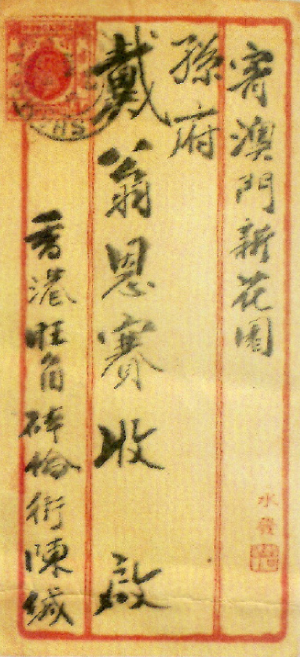 寄澳門新花園
孫府
戴翁恩賽收啟
香港旺角砵倫街陳緘
永發